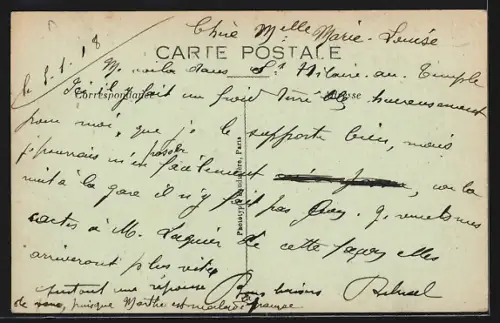 le 8-1-18
Chère Melle Marie-Louise
CARTE POSTALE
Me voila dans St Hilaire-au-Temple
Ici il y fait un froid heureusement
Correspondance
pour moi, que je le supporte bien, mais
je pourrais m'en passer facilement car la
nuit à la gare il n'y fait pas. Je remets mes
cartes à M. de cette façon elles
arriveront plus vite
Bons baisers
surtout une réponse
de puisque Marthe est malade
Phototypie Baudinière, Paris